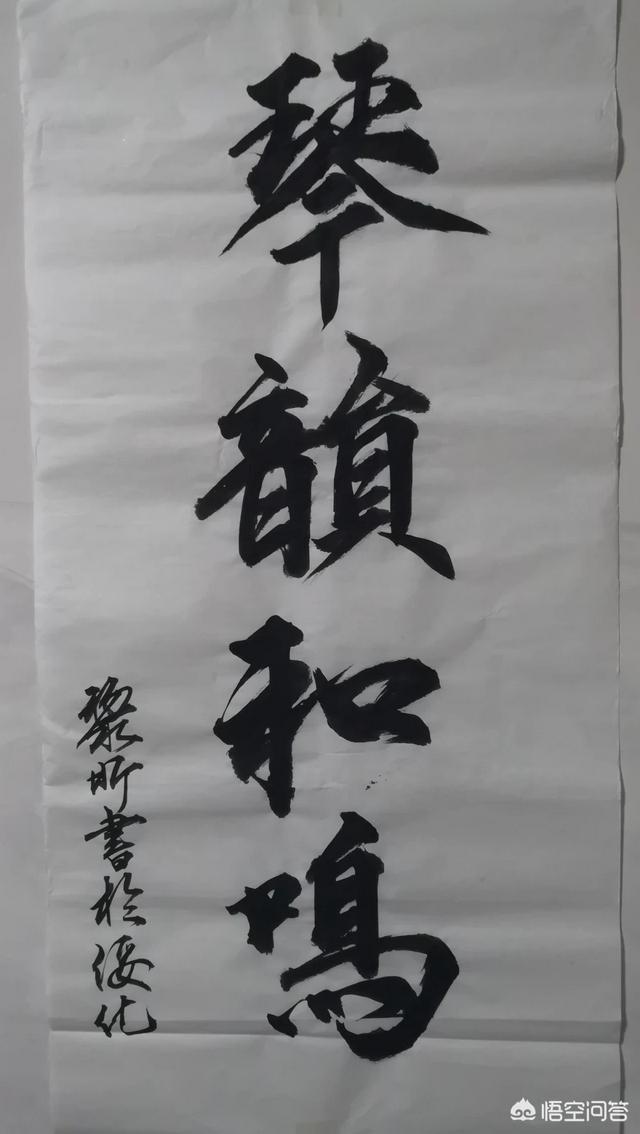 琴韻和鳴
黎昕書於绥化
悟空问答